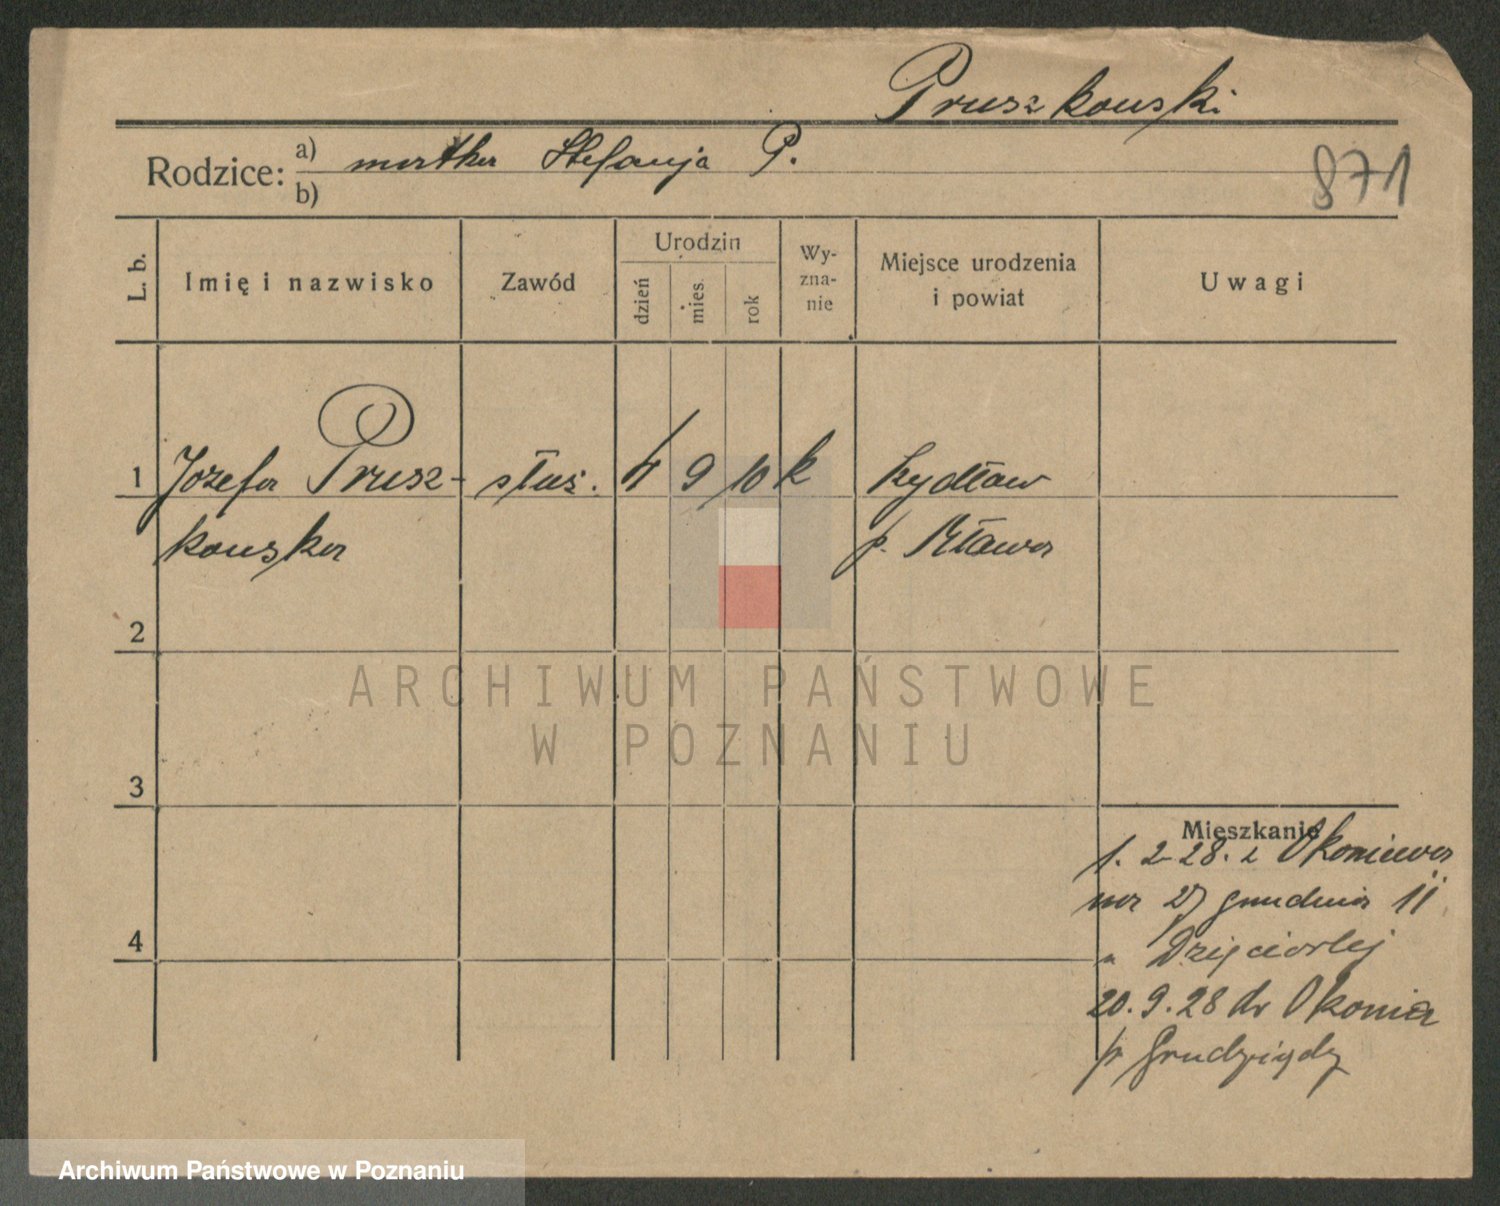 Pruszkowski
Rodzice: a) matka Stefanja P.
b)
871
L. b. Imię i nazwisko Zawód Urodzin dzień mies. rok Wy-zna-nie Miejsce urodzenia i powiat Uwagi
1 Jozefa Prusz- służ. 4 9 10 k
kowska p. Mława
2
3
4
Mieszkanie
1. 2 28. z Okoniewa
na 27 grudnia 11
" Dzięciołej
20. 9. 28 do Okonia
p Grudziądz
ARCHIWUM PAŃSTWOWE
W POZNANIU
Archiwum Państwowe w Poznaniu